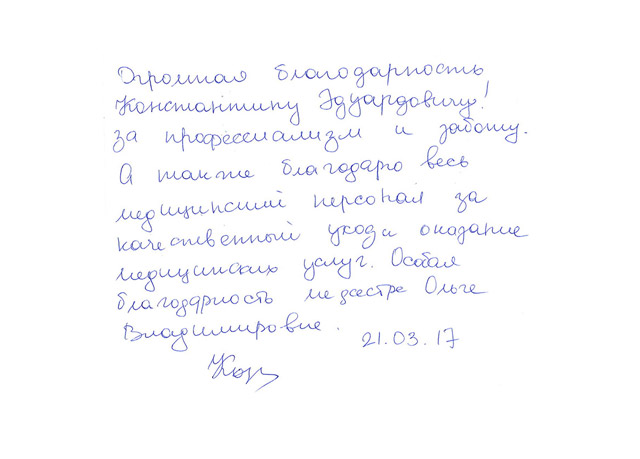 Огромная благодарность
Константину Эдуардовичу!
за профессиализм и заботу.
А также благодарю весь
медицинский персонал за
качественный уход и оказание
медицинских услуг. Особая
благодарность медсестре Ольге
Владимировне.
21.03.17